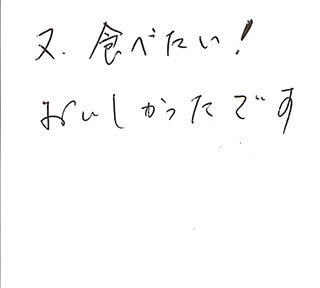 又、食べたい!
おいしかったです